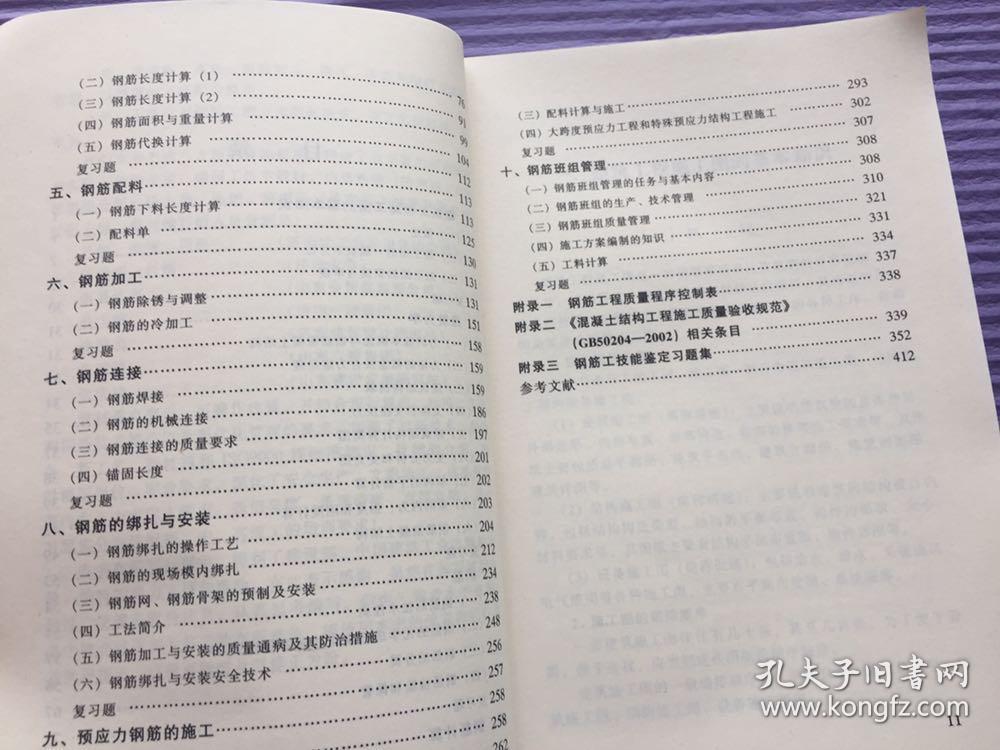 (二) 钢筋长度计算 (1) …… 76
(三) 钢筋长度计算 (2) …… 91
(四) 钢筋面积与重量计算 …… 99
(五) 钢筋代换计算 …… 104
复习题 …… 112
五、钢筋配料 …… 113
(一) 钢筋下料长度计算 …… 113
(二) 配料单 …… 125
复习题 …… 130
六、钢筋加工 …… 131
(一) 钢筋除锈与调整 …… 131
(二) 钢筋的冷加工 …… 151
复习题 …… 158
七、钢筋连接 …… 159
(一) 钢筋焊接 …… 159
(二) 钢筋的机械连接 …… 186
(三) 钢筋连接的质量要求 …… 197
(四) 锚固长度 …… 201
复习题 …… 202
八、钢筋的绑扎与安装 …… 203
(一) 钢筋绑扎的操作工艺 …… 204
(二) 钢筋的现场模内绑扎 …… 212
(三) 钢筋网、钢筋骨架的预制及安装 …… 234
(四) 工法简介 …… 238
(五) 钢筋加工与安装的质量通病及其防治措施 …… 248
(六) 钢筋绑扎与安装安全技术 …… 256
复习题 …… 257
九、预应力钢筋的施工 …… 258
258
262
(三) 配料计算与施工 …… 293
(四) 大跨度预应力工程和特殊预应力结构工程施工 …… 302
复习题 …… 307
十、钢筋班组管理 …… 308
(一) 钢筋班组管理的任务与基本内容 …… 308
(二) 钢筋班组的生产、技术管理 …… 310
(三) 钢筋班组质量管理 …… 321
(四) 施工方案编制的知识 …… 331
(五) 工料计算 …… 334
复习题 …… 337
附录一 钢筋工程质量程序控制表 …… 338
附录二 《混凝土结构工程施工质量验收规范》
(GB50204—2002) 相关条目 …… 339
附录三 钢筋工技能鉴定习题集 …… 352
参考文献 …… 412
11
孔夫子旧书网
www.kongfz.com